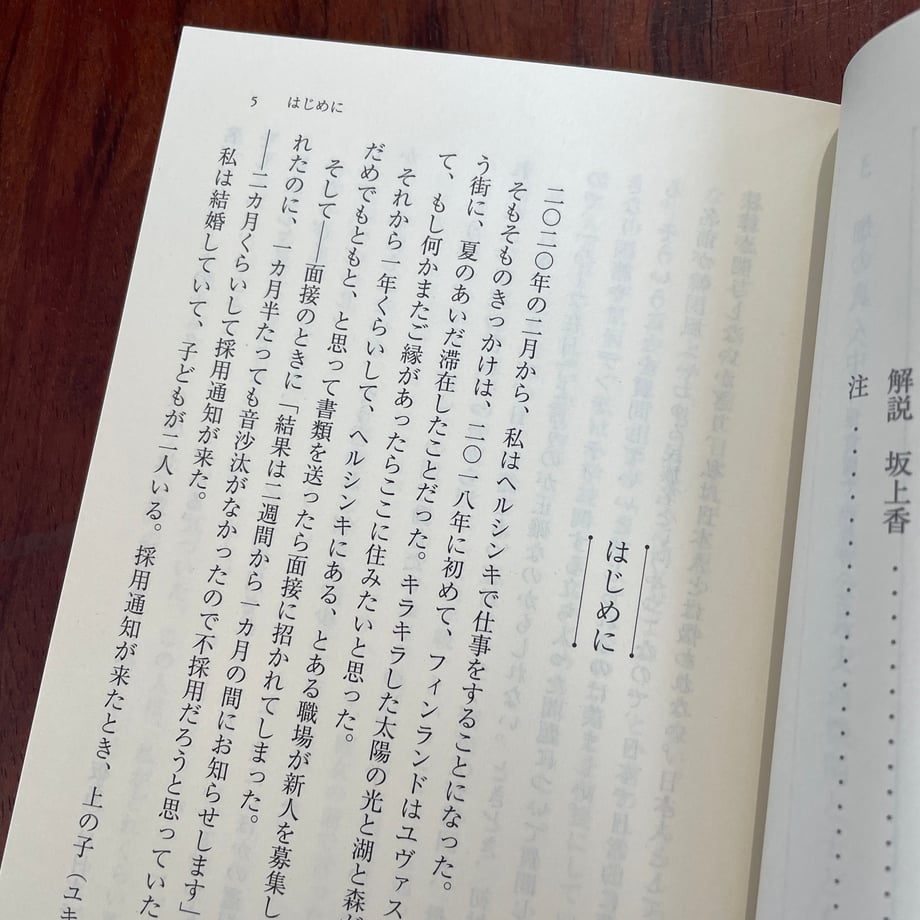 解説 坂上香 ・・・・・・・・
注 ・・・・・・・・・・・・
5 はじめに
はじめに
二〇二〇年の二月から、私はヘルシンキで仕事をすることになった。
そもそものきっかけは、二〇一八年に初めて、フィンランドはユヴァス
う街に、夏のあいだ滞在したことだった。キラキラした太陽の光と湖と森が
て、もし何かまたご縁があったらここに住みたいと思った。
それから一年くらいして、ヘルシンキにある、とある職場が新人を募集し
だめでもともと、と思って書類を送ったら面接に招かれてしまった。
そして——面接のときに「結果は二週間から一カ月の間にお知らせします」
れたのに、一カ月半たっても音沙汰がなかったので不採用だろうと思っていた
——二カ月くらいして採用通知が来た。
私は結婚していて、子どもが二人いる。採用通知が来たとき、上の子（ユキ